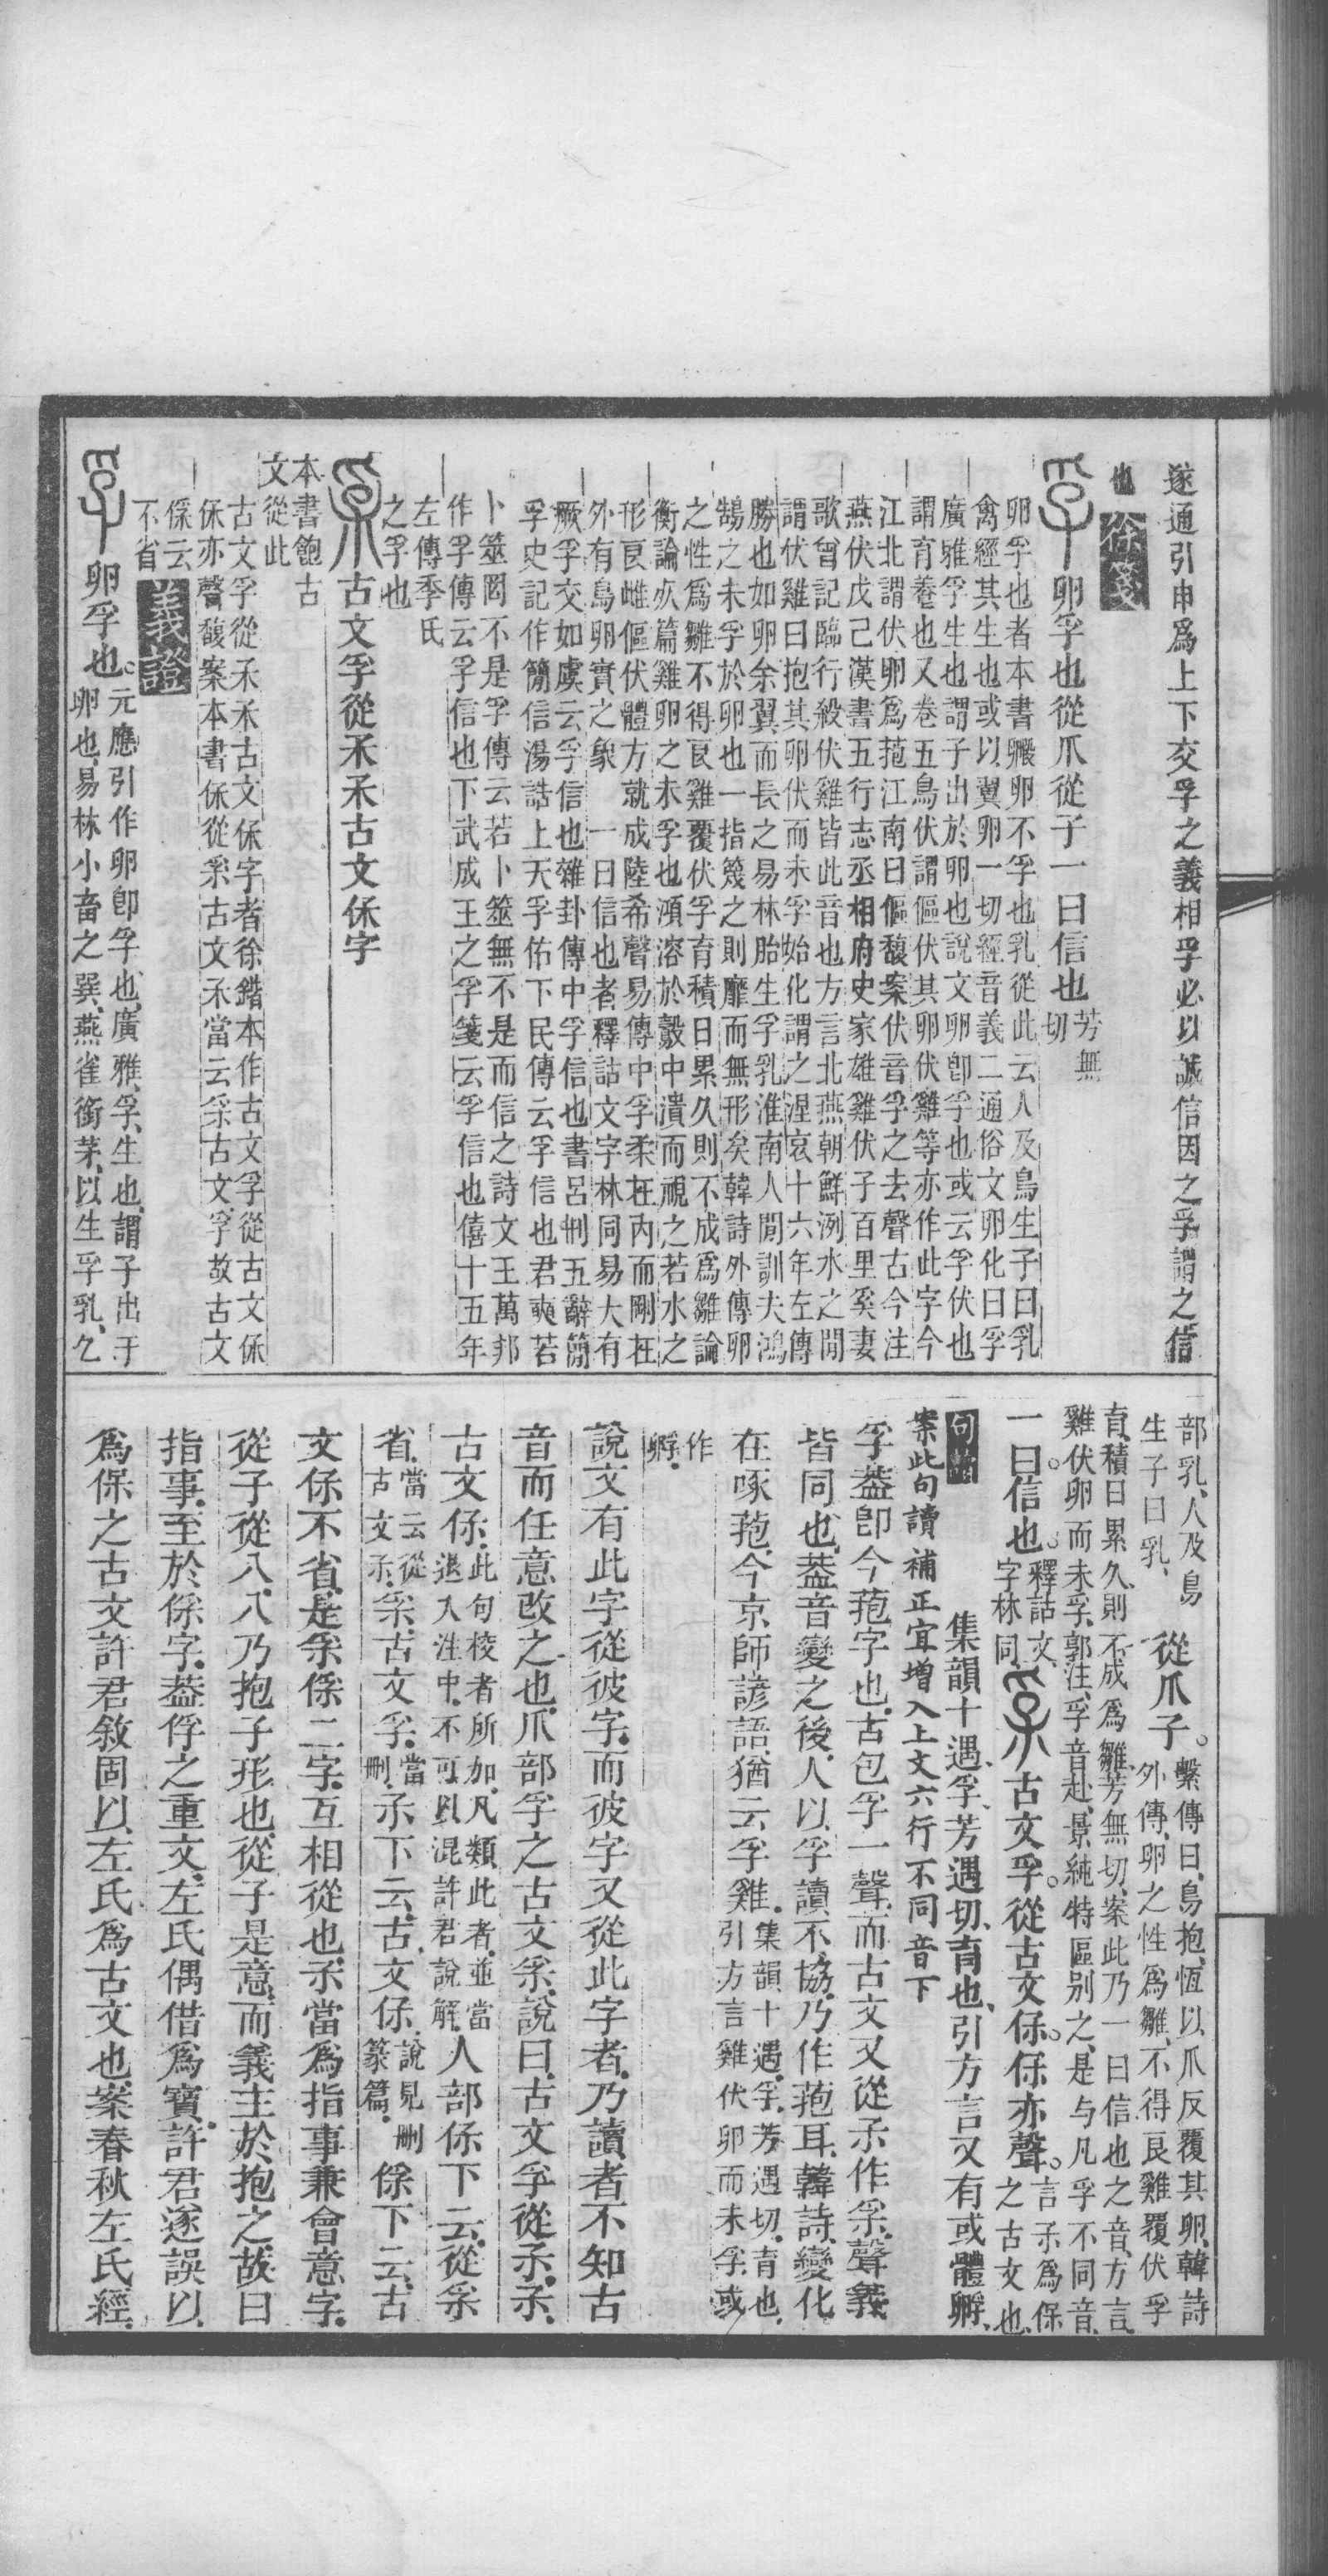 遂通引申爲上下交孚之義相孚必以誠信因之孚謂之信
也
徐箋
卵孚也從爪從子一曰信也芳無切
卵孚也者本書㲉卵不孚也乳從此云人及鳥生子曰乳
禽經其生也或以翼卵一切經音義二通俗文卵化曰孚
廣雅孚生也謂子出於卵也說文卵卽孚也或云孚伏也
謂育養也又卷五鳥伏謂傴伏其卵伏雞等亦作此字今
江北謂伏卵爲菢江南曰傴馥案伏音孚之去聲古今注
燕伏戊己漢書五行志丞相府史家雄雞伏子百里奚妻
歌曾記臨行殺伏雞皆此音也方言北燕朝鮮洌水之閒
謂伏雞曰抱其卵伏而未孚始化謂之涅哀十六年左傳
勝也如卵余翼而長之易林胎生孚乳淮南人閒訓夫鴻
鵠之未孚於卵也一指篾之則靡而無形矣韓詩外傳卵
之性爲雛不得良雞覆伏孚育積日累久則不成爲雛論
衡論𣦸篇雞卵之未孚也澒溶於㲉中潰而視之若水之
形良雌傴伏體方就成陸希聲易傳中孚柔在內而剛在
外有鳥卵實之象一曰信也者釋詁文字林同易大有
厥孚交如虞云孚信也雜卦傳中孚信也書呂刑五辭簡
孚史記作簡信湯誥上天孚佑下民傳云孚信也君奭若
卜筮罔不是孚傳云若卜筮無不是而信之詩文王萬邦
作孚傳云孚信也下武成王之孚箋云孚信也僖十五年
左傳季氏
之孚也
古文孚從𤓽𤓽古文保字
本書飽古
文從此
古文孚從𤓽𤓽古文保字者徐鍇本作古文孚從古文保
保亦聲馥案本書保從𤔍古文𤓽當云𤔍古文孚故古文
保云
不省
義證
卵孚也元應引作卵卽孚也廣雅孚生也謂子出于
卵也易林小畜之巽燕雀銜茅以生孚乳乞
部乳人及鳥
生子曰乳
從爪子繫傳曰鳥抱恆以爪反覆其卵韓詩
外傳卵之性爲雛不得良雞覆伏孚
育積日累久則不成爲雛芳無切案此乃一曰信也之音方言
雞伏卵而未孚郭注孚音赴景純特區別之是与凡孚不同音
一曰信也釋詁文字林同古文孚從古文保保亦聲言𤓽爲保之古文也
句讀
集韻十遇孚芳遇切育也引方言又有或體孵
案此句讀補正宜增入上文六行不同音下
孚葢卽今菢字也古包孚一聲而古文又從𤓽作𤔍聲義
皆同也葢音變之後人以孚讀不協乃作菢耳韓詩變化
在啄菢今京師諺語猶云孚雞集韻十遇孚芳遇切育也引方言雞伏卵而未孚或
作
孵
說文有此字從彼字而彼字又從此字者乃讀者不知古
音而任意改之也爪部孚之古文𤔍說曰古文孚從𤓽𤓽
古文保此句校者所加凡類此者並當退入注中不可以混許君說解人部保下云從𤔍
省當云從古文𤓽𤔍古文孚當刪𤓽下云古文保說見刪篆篇保下云古
文保不省是𤔍保二字互相從也𤓽當爲指事兼會意字
從子從八八乃抱子形也從子是意而義主於抱之故曰
指事至於保字葢俘之重文左氏偶借爲寶許君遂誤以
爲保之古文許君敘固以左氏爲古文也案春秋左氏經